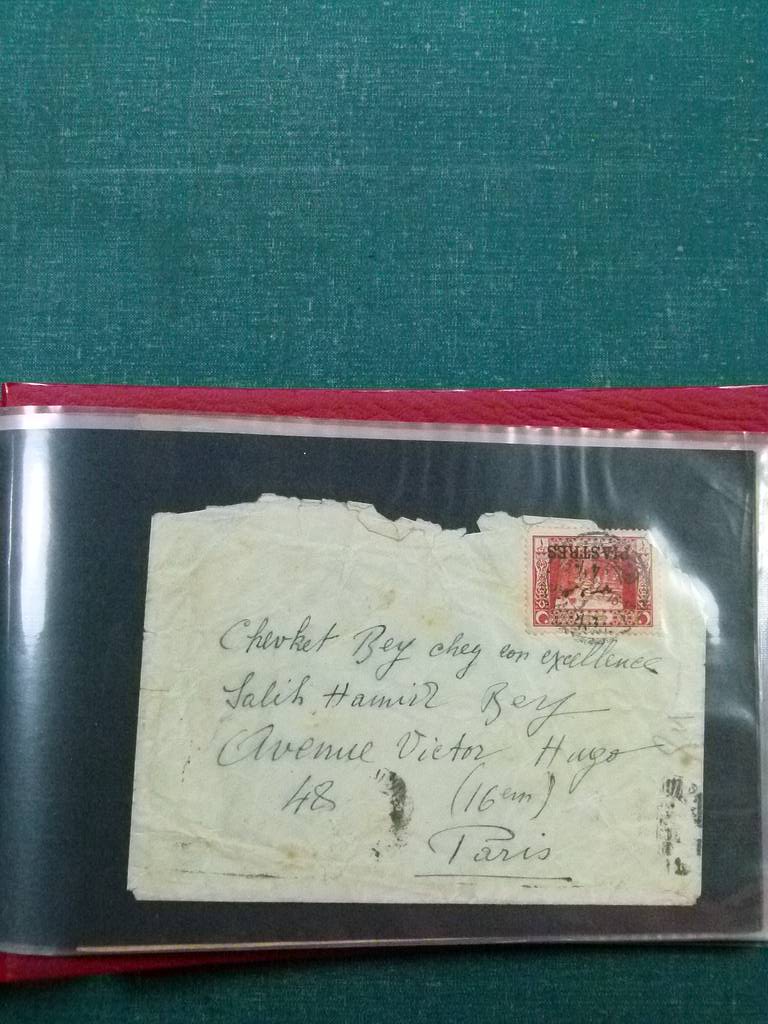 PIASTRES
Chevket Bey chez son excellence
Salih Hamid Bey
Avenue Victor Hugo
48 (16em)
Paris